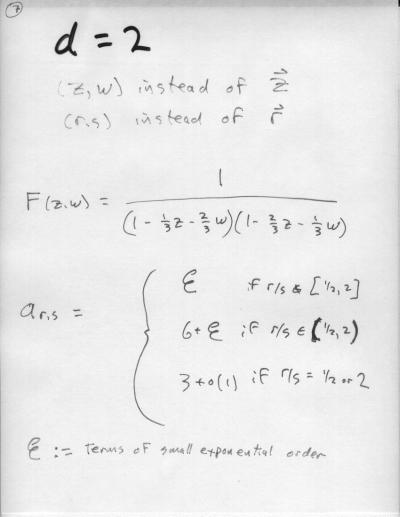 d = 2
(z,w) instead of z⃗
(r,s) instead of r⃗
F(z,w) = 1 / (1 - 1/3 z - 2/3 w)(1 - 2/3 z - 1/3 w)
a_{r,s} = {
ℰ if r/s ∉ [1/2, 2]
6+ℰ if r/s ∈ (1/2, 2)
3+o(1) if r/s = 1/2 or 2
ℰ := terms of small exponential order